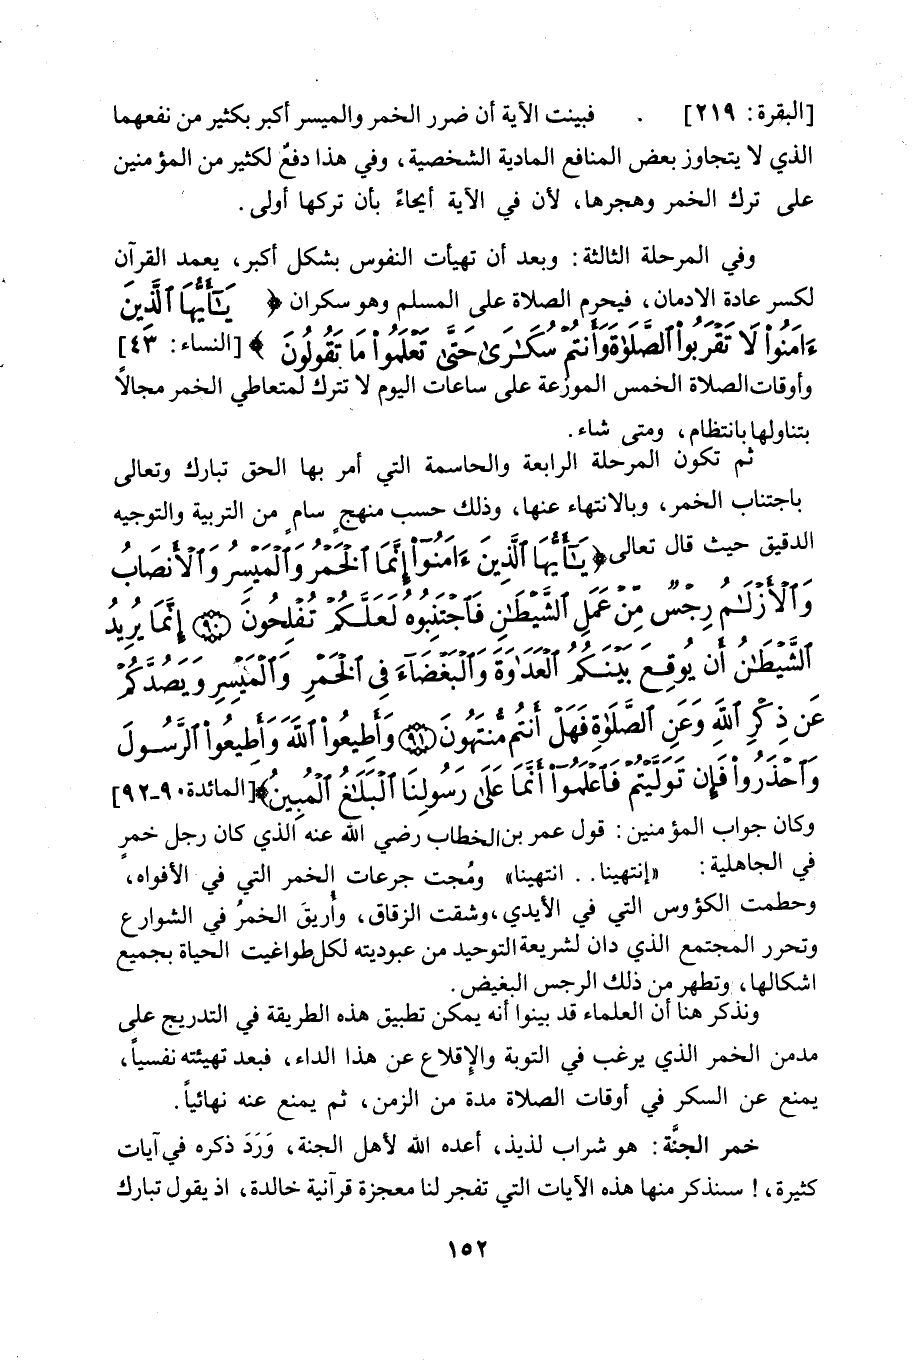 [البقرة: ٢١٩] . فبينت الآية أن ضرر الخمر والميسر أكبر بكثير من نفعهما
الذي لا يتجاوز بعض المنافع المادية الشخصية، وفي هذا دفعٌ لكثير من المؤمنين
على ترك الخمر وهجرها، لأن في الآية أيحاءً بأن تركها أولى.
وفي المرحلة الثالثة: وبعد أن تهيأت النفوس بشكل أكبر، يعمد القرآن
لكسر عادة الادمان، فيحرم الصلاة على المسلم وهو سكران ﴿ يَٰٓأَيُّهَا ٱلَّذِينَ
ءَامَنُوا۟ لَا تَقْرَبُوا۟ ٱلصَّلَوٰةَ وَأَنتُمْ سُكَٰرَىٰ حَتَّىٰ تَعْلَمُوا۟ مَا تَقُولُونَ ﴾ [النساء: ٤٣]
وأوقات الصلاة الخمس الموزعة على ساعات اليوم لا تترك لمتعاطي الخمر مجالاً
بتناولها بانتظام، ومتى شاء.
ثم تكون المرحلة الرابعة والحاسمة التي أمر بها الحق تبارك وتعالى
باجتناب الخمر، وبالانتهاء عنها، وذلك حسب منهجٍ سامٍ من التربية والتوجيه
الدقيق حيث قال تعالى ﴿ يَٰٓأَيُّهَا ٱلَّذِينَ ءَامَنُوٓا۟ إِنَّمَا ٱلْخَمْرُ وَٱلْمَيْسِرُ وَٱلْأَنصَابُ
وَٱلْأَزْلَٰمُ رِجْسٌ مِّنْ عَمَلِ ٱلشَّيْطَٰنِ فَٱجْتَنِبُوهُ لَعَلَّكُمْ تُفْلِحُونَ ۝٩٠ إِنَّمَا يُرِيدُ
ٱلشَّيْطَٰنُ أَن يُوقِعَ بَيْنَكُمُ ٱلْعَدَٰوَةَ وَٱلْبَغْضَآءَ فِى ٱلْخَمْرِ وَٱلْمَيْسِرِ وَيَصُدَّكُمْ
عَن ذِكْرِ ٱللَّهِ وَعَنِ ٱلصَّلَوٰةِ فَهَلْ أَنتُم مُّنتَهُونَ ۝٩١ وَأَطِيعُوا۟ ٱللَّهَ وَأَطِيعُوا۟ ٱلرَّسُولَ
وَٱحْذَرُوا۟ فَإِن تَوَلَّيْتُمْ فَٱعْلَمُوٓا۟ أَنَّمَا عَلَىٰ رَسُولِنَا ٱلْبَلَٰغُ ٱلْمُبِينُ ﴾ [المائدة ٩٠-٩٢]
وكان جواب المؤمنين: قول عمر بن الخطاب رضي الله عنه الذي كان رجل خمرٍ
في الجاهلية: «إنتهينا. . انتهينا» ومُجت جرعات الخمر التي في الأفواه،
وحطمت الكؤوس التي في الأيدي، وشقت الزقاق، وأُريقَ الخمرُ في الشوارع
وتحرر المجتمع الذي دان لشريعة التوحيد من عبوديته لكل طواغيت الحياة بجميع
اشكالها، وتطهر من ذلك الرجس البغيض.
ونذكر هنا أن العلماء قد بينوا أنه يمكن تطبيق هذه الطريقة في التدريج على
مدمن الخمر الذي يرغب في التوبة والإقلاع عن هذا الداء، فبعد تهيئته نفسياً،
يمنع عن السكر في أوقات الصلاة مدة من الزمن، ثم يمنع عنه نهائياً.
خمر الجنَّة: هو شراب لذيذ، أعده الله لأهل الجنة، وَرَدَ ذكره في آيات
كثيرة،! سنذكر منها هذه الآيات التي تفجر لنا معجزة قرآنية خالدة، اذ يقول تبارك
١٥٢